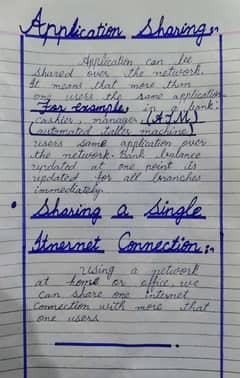 Application Sharing:-
Application can be
shared over the network.
It means that more than
one users the same application
For Example, in a bank:
cashier, manager, (ATM)
(automated teller machine)
users same application over
the network. Bank balance
updated at one point is
updated for all branches
immediately.
Sharing a Single
Internet Connection:-
Using a network
at home or office, we
can share one internet
connection with more that
one users